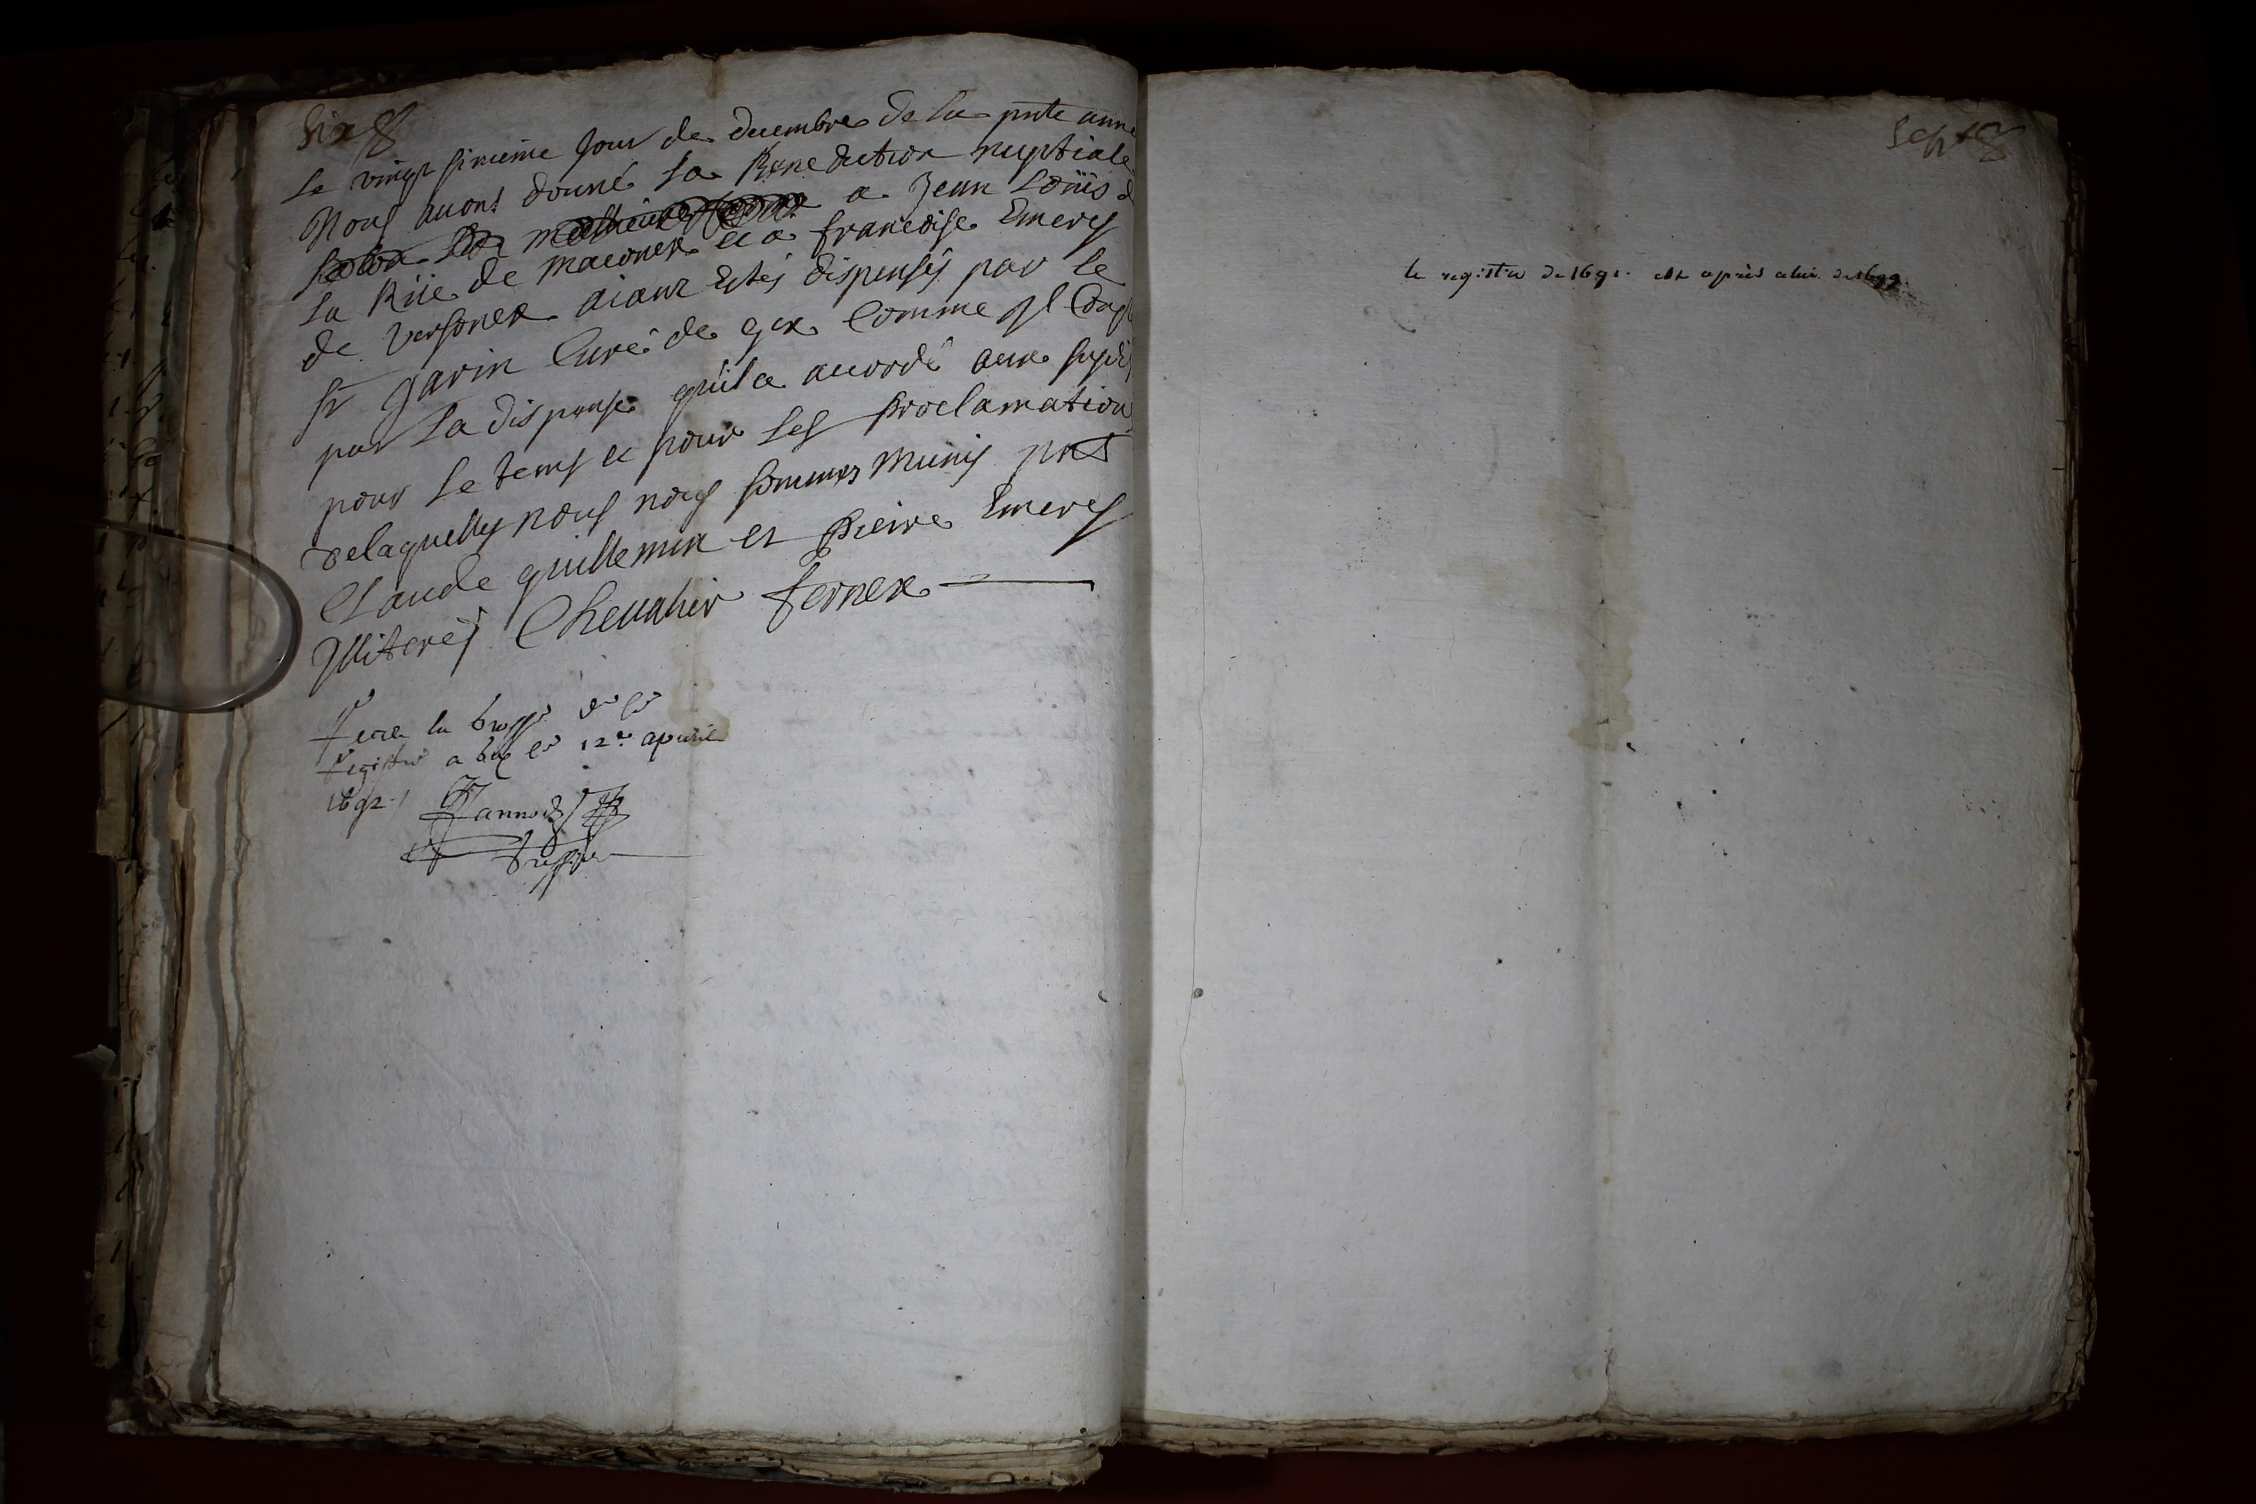 six
Le vingt sixieme Jour de decembre de la pnte anne
Nous auons donné la Benediction nuptiale
a Jean Loüis d
la Rüe de maconex et a francoise Emery
de versonex aiant Estés dispensés par le
Sr Garin Curé de gex Comme Jl Con
par la dispense qu'il a accordé aux susd
pour le temps et pour les proclamation
delaquelles nous nous sommes Munis pnt
Claude guillemin et pierre Emery
Jlliterés Chevalier fernex
la de ce
registre a le 12e apuril
1692
Sept
le registre de 1691. est après celui de 1699.